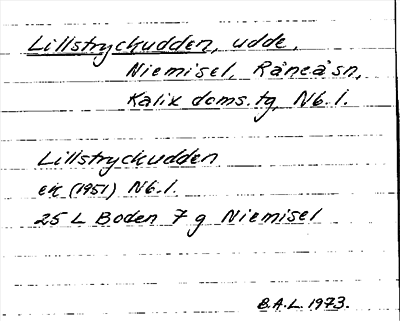 Lillstryckudden, udde,
Niemisel, Råneå sn,
Kalix doms.tg, Nb.l.
Lillstryckudden
ek (1951) Nb.l.
25 L Boden 7 g Niemisel
B.A.L. 1973.